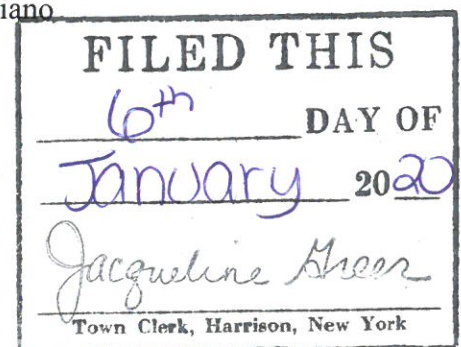 iano
FILED THIS
6th DAY OF
January 2020
Jacqueline Greer
Town Clerk, Harrison, New York